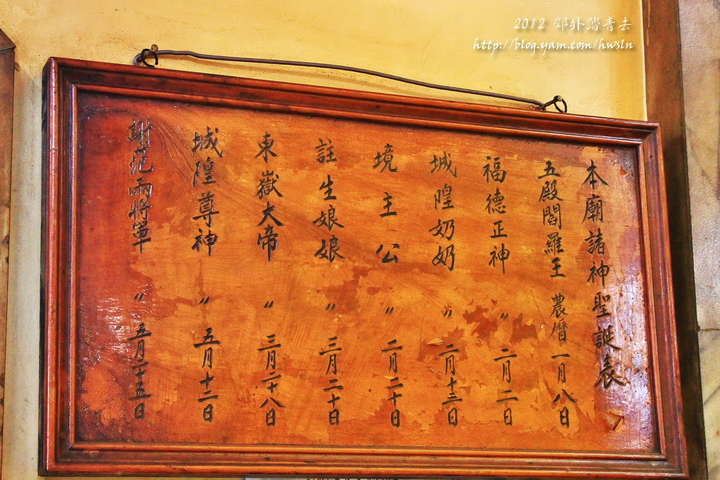 2012 郊外踏青去
http://blog.yam.com/hwsln
本廟諸神聖誕表
五殿閻羅王 農曆 一月八日
福德正神 〃 二月二日
城隍奶奶 〃 二月十三日
境主公 〃 二月二十日
註生娘娘 〃 三月二十日
東嶽大帝 〃 三月二十八日
城隍尊神 〃 五月十二日
謝范兩將軍 〃 五月二十五日